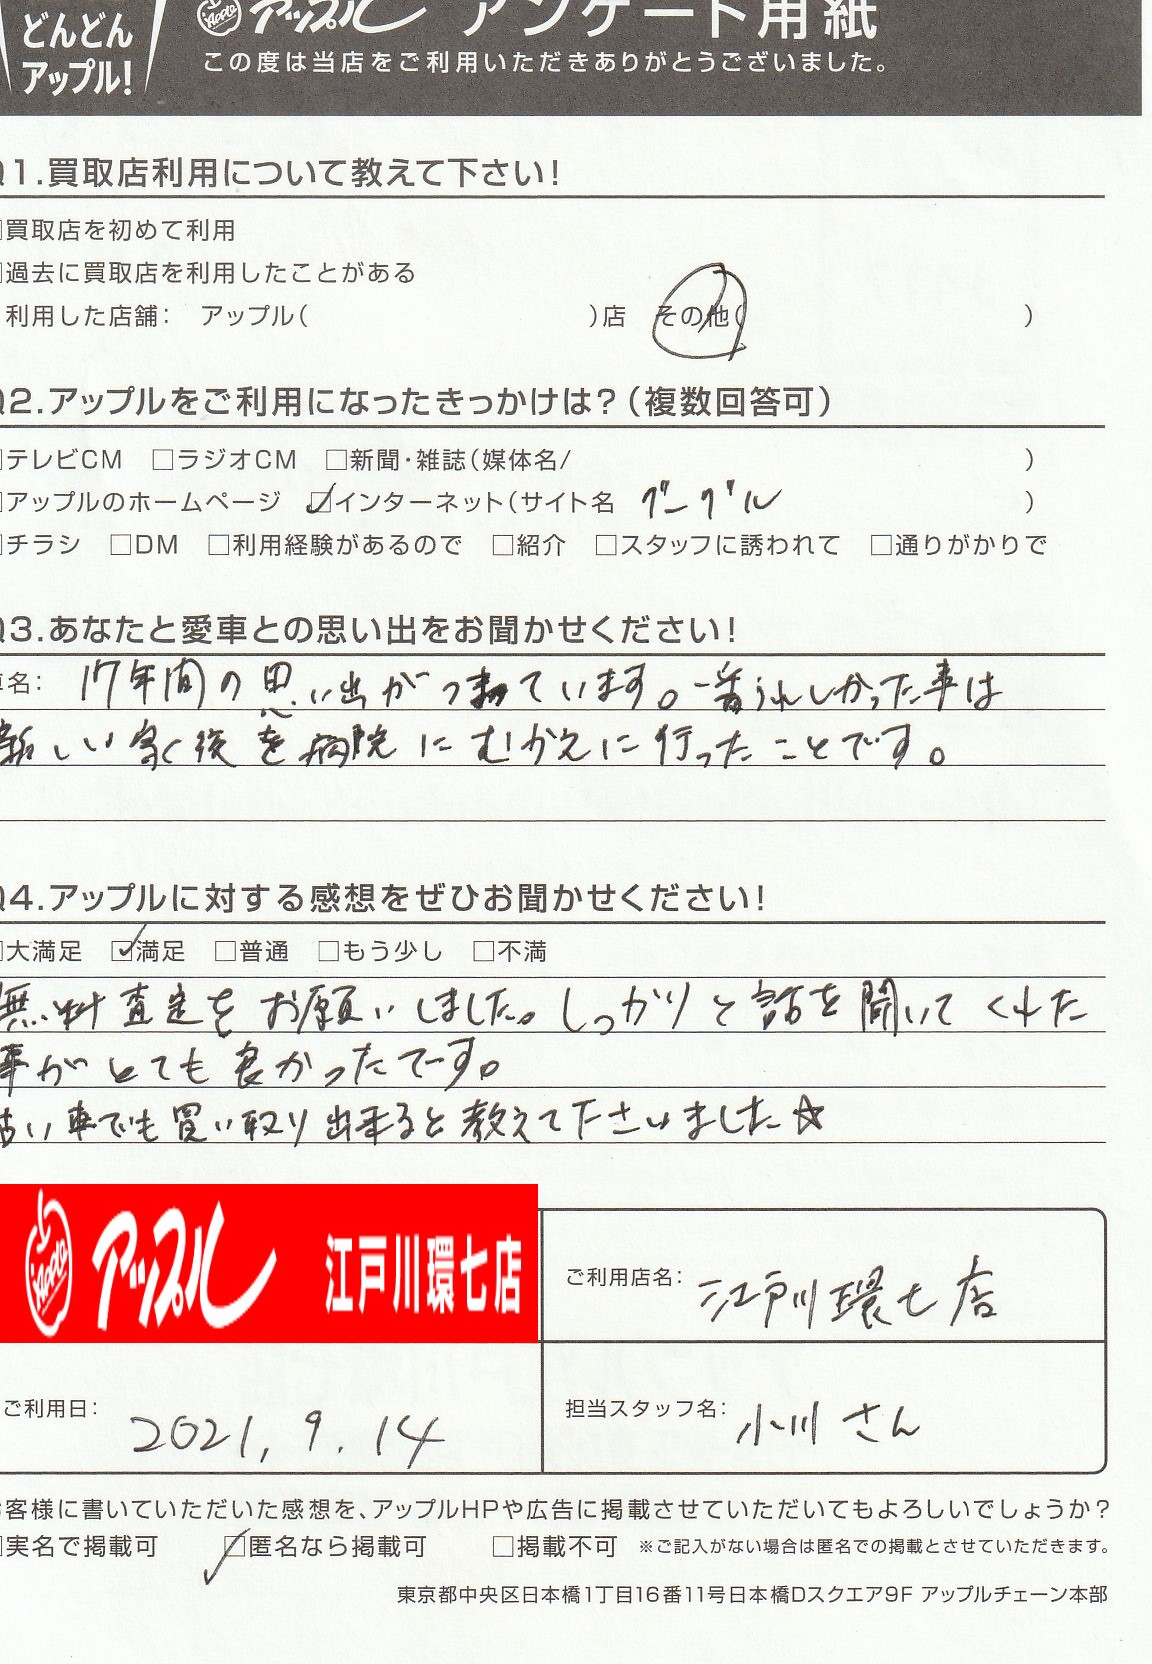 どんどん
アップル!
Apple アップル アンケート用紙
この度は当店をご利用いただきありがとうございました。
Q1.買取店利用について教えて下さい!
□買取店を初めて利用
□過去に買取店を利用したことがある
利用した店舗: アップル( )店 その他( )
Q2.アップルをご利用になったきっかけは?(複数回答可)
□テレビCM □ラジオCM □新聞・雑誌(媒体名/ )
□アップルのホームページ ☑インターネット(サイト名 グーグル )
□チラシ □DM □利用経験があるので □紹介 □スタッフに誘われて □通りがかりで
Q3.あなたと愛車との思い出をお聞かせください!
車名: 17年間の思い出がつまっています。一番うれしかった事は
新しい家族を病院にむかえに行ったことです。
Q4.アップルに対する感想をぜひお聞かせください!
□大満足 ☑満足 □普通 □もう少し □不満
無料査定をお願いしました。しっかりと話を聞いてくれた
事がとても良かったでーす。
古い車でも買い取り出来ると教えて下さいました☆
Apple アップル 江戸川環七店
ご利用店名: 江戸川環七店
ご利用日: 2021, 9. 14
担当スタッフ名: 小川さん
お客様に書いていただいた感想を、アップルHPや広告に掲載させていただいてもよろしいでしょうか?
□実名で掲載可 ☑匿名なら掲載可 □掲載不可 ※ご記入がない場合は匿名での掲載とさせていただきます。
東京都中央区日本橋1丁目16番11号日本橋Dスクエア9F アップルチェーン本部